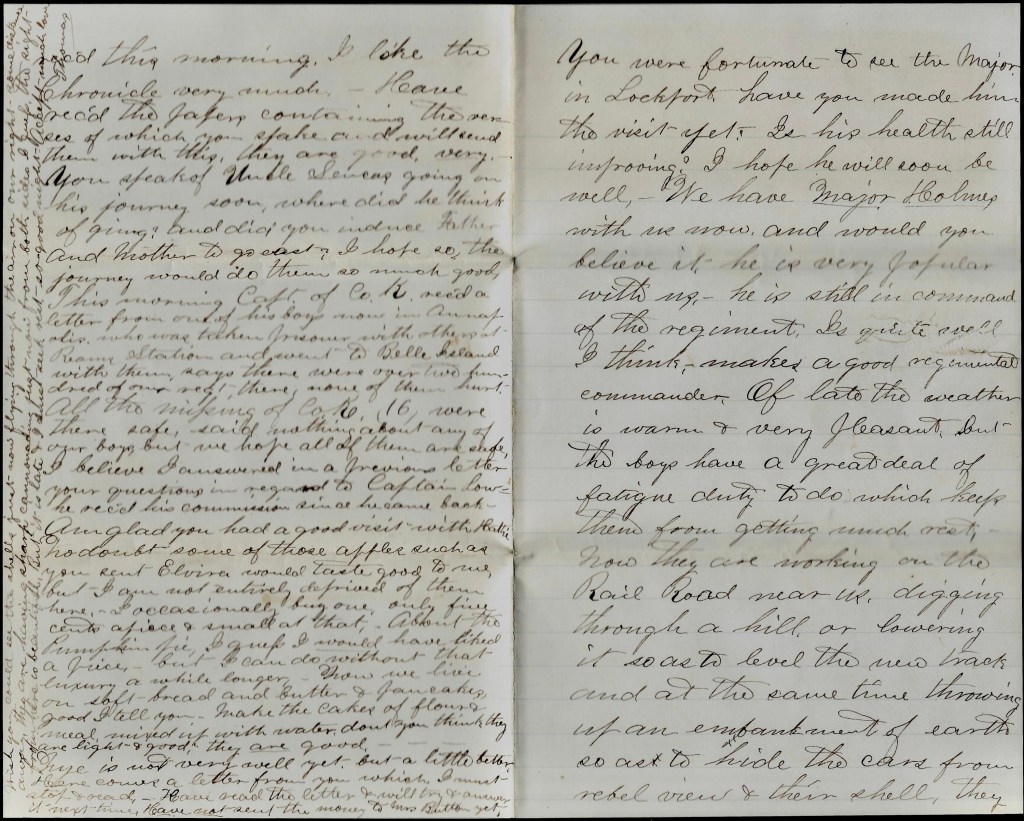 rec'd this morning. I like the
Chronicle very much, - Have
rec'd the papers containing the ver-
ses of which you spake and will send
them with this, they are good, very. -
You speak of Uncle Seneca's going on
his journey soon, where did he think
of going? and did you induce Father
and Mother to go east? I hope so, the
journey would do them so much good,
This morning Capt. of Co. K. rec'd a
letter from one of his boys now in Annap-
olis. who was taken prisoner with others at
Reams Station and went to Belle Island
with them, says there were over two hun-
dred of our regt. there, none of them hurt.
All the missing of Co. K., 16, were
there safe, said nothing about any of
our boys but we hope all of them are safe,
I believe I answered in a previous letter
your questions in regard to Captain Low-
he rec'd his commission since he came back-
Am glad you had a good visit with
no doubt some of those apples such as
you sent Elvira would taste good to me,
but I am not entirely deprived of them
here, - I occasionally buy one, only five
cents apiece & small at that, - About the
Pumpkin pie, I guess I would have liked
a piece, - but I can do without that
luxury a while longer. - Now we live
on soft bread and butter & pancakes
good I tell you - Make the cakes of flour &
meal, mixed up with water, dont you think they
are light & good? they are good. -
is not very well yet. but a little better.
Here comes a letter from you which I must
stop & read, - Have read the letter & will try & answer
it next time, Have not sent the money to Mrs Button yet,
wish you could see the shells just now flying through the air on our right - some distance
away. They are having sharp cannonading just now from both sides I guess, the sight
is beautiful. But it is late & I must seek rest so good night. Accept much love
Thomas
You were fortunate to see the Major
in Lockport, have you made him
the visit yet? Is his health still
improving? I hope he will soon be
well, - We have Major Holmes
with us now. and would you
believe it, he is very popular
with us, - he is still in command
of the regiment. Is quite well
I think, - makes a good regimental
commander. Of late the weather
is warm & very pleasant. but
the boys have a great deal of
fatigue duty to do which keeps
them from getting much rest, -
now they are working on the
Rail Road near us, digging
through a hill, or lowering
it so as to level the new track
and at the same time throwing
up an embankment of earth
so as to hide the cars from
rebel view & their shell, they